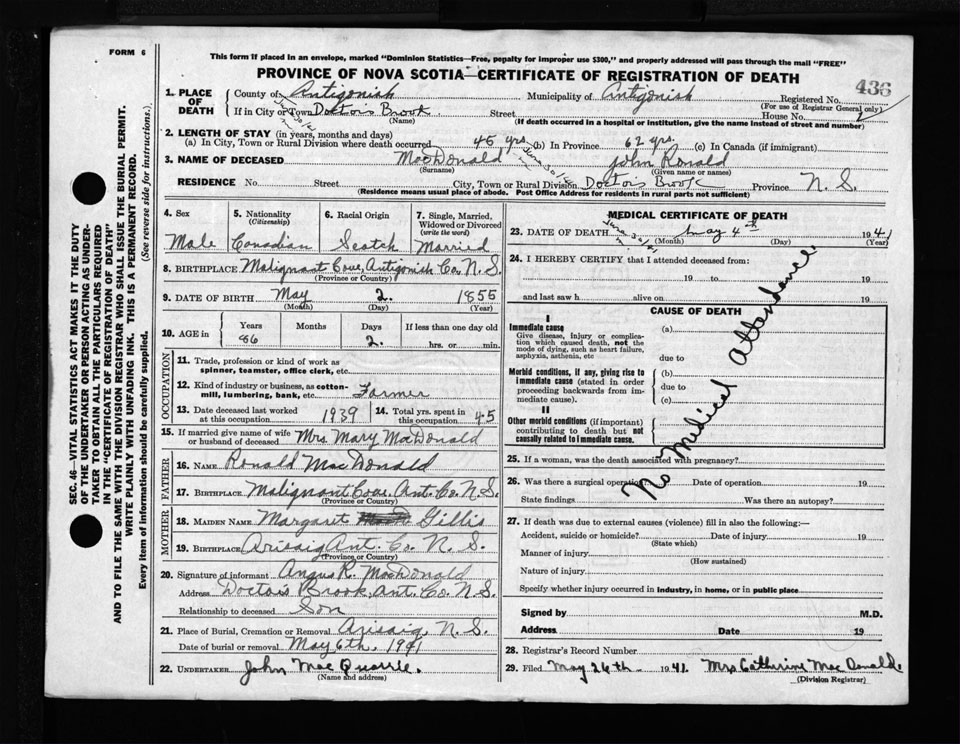 FORM 6
This form if placed in an envelope, marked "Dominion Statistics—Free, penalty for improper use $300," and properly addressed will pass through the mail "FREE"
PROVINCE OF NOVA SCOTIA—CERTIFICATE OF REGISTRATION OF DEATH
436
1. PLACE OF DEATH
County of Antigonish Municipality of Antigonish Registered No.
(For use of Registrar General only)
If in City or Town Doctor's Brook Street House No.
(Name) (If death occurred in a hospital or institution, give the name instead of street and number)
2. LENGTH OF STAY (in years, months and days)
(a) In City, Town or Rural Division where death occurred 45 yrs. (b) In Province 62 yrs. (c) In Canada (if immigrant)
3. NAME OF DECEASED MacDonald John Ronald
(Surname) (Given name or names)
RESIDENCE No. Street City, Town or Rural Division Doctor's Brook Province N. S.
(Residence means usual place of abode. Post Office Address for residents in rural parts not sufficient)
4. Sex
Male
5. Nationality
(Citizenship)
Canadian
6. Racial Origin
Scotch
7. Single, Married, Widowed or Divorced
(write the word)
Married
8. BIRTHPLACE Malignant Cove, Antigonish Co. N. S.
(Province or Country)
9. DATE OF BIRTH May 2. 1855
(Month) (Day) (Year)
10. AGE in Years Months Days If less than one day old
86 2. hrs. or min.
OCCUPATION
11. Trade, profession or kind of work as spinner, teamster, office clerk, etc.
12. Kind of industry or business, as cotton-mill, lumbering, bank, etc. Farmer
13. Date deceased last worked at this occupation 1939
14. Total yrs. spent in this occupation 45
15. If married give name of wife or husband of deceased Mrs. Mary MacDonald
FATHER
16. NAME Ronald MacDonald
17. BIRTHPLACE Malignant Cove, Ant. Co. N. S.
(Province or Country)
MOTHER
18. MAIDEN NAME Margaret Gillis
19. BIRTHPLACE Arisaig Ant. Co. N. S.
(Province or Country)
20. Signature of informant Angus R. MacDonald
Address Doctor's Brook, Ant. Co. N. S.
Relationship to deceased Son
21. Place of Burial, Cremation or Removal Arisaig, N. S.
Date of burial or removal May 6th, 1941
22. UNDERTAKER John MacQuarrie.
(Name and address)
MEDICAL CERTIFICATE OF DEATH
23. DATE OF DEATH May 4th 1941
(Month) (Day) (Year)
24. I HEREBY CERTIFY that I attended deceased from:
19 to 19
and last saw h alive on 19
CAUSE OF DEATH
I
Immediate cause
Give disease, injury or complication which caused death, not the mode of dying, such as heart failure, asphyxia, asthenia, etc
(a)
due to
Morbid conditions, if any, giving rise to immediate cause (stated in order proceeding backwards from immediate cause).
(b)
due to
(c)
II
Other morbid conditions (if important) contributing to death but not causally related to immediate cause.
No Medical attendance.
25. If a woman, was the death associated with pregnancy?
26. Was there a surgical operation? Date of operation 19
State findings Was there an autopsy?
27. If death was due to external causes (violence) fill in also the following:—
Accident, suicide or homicide? Date of injury 19
(State which)
Manner of injury
(How sustained)
Nature of injury
Specify whether injury occurred in industry, in home, or in public place
Signed by M.D.
Address Date 19
28. Registrar's Record Number
29. Filed May 26th 1941. Mrs Catherine MacDonald.
(Division Registrar)
SEC. 46—VITAL STATISTICS ACT MAKES IT THE DUTY
OF THE UNDERTAKER OR PERSON ACTING AS UNDER-
TAKER TO OBTAIN ALL THE PARTICULARS REQUIRED
IN THE "CERTIFICATE OF REGISTRATION OF DEATH"
AND TO FILE THE SAME WITH THE DIVISION REGISTRAR WHO SHALL ISSUE THE BURIAL PERMIT.
WRITE PLAINLY WITH UNFADING INK. THIS IS A PERMANENT RECORD.
Every item of information should be carefully supplied. (See reverse side for instructions.)